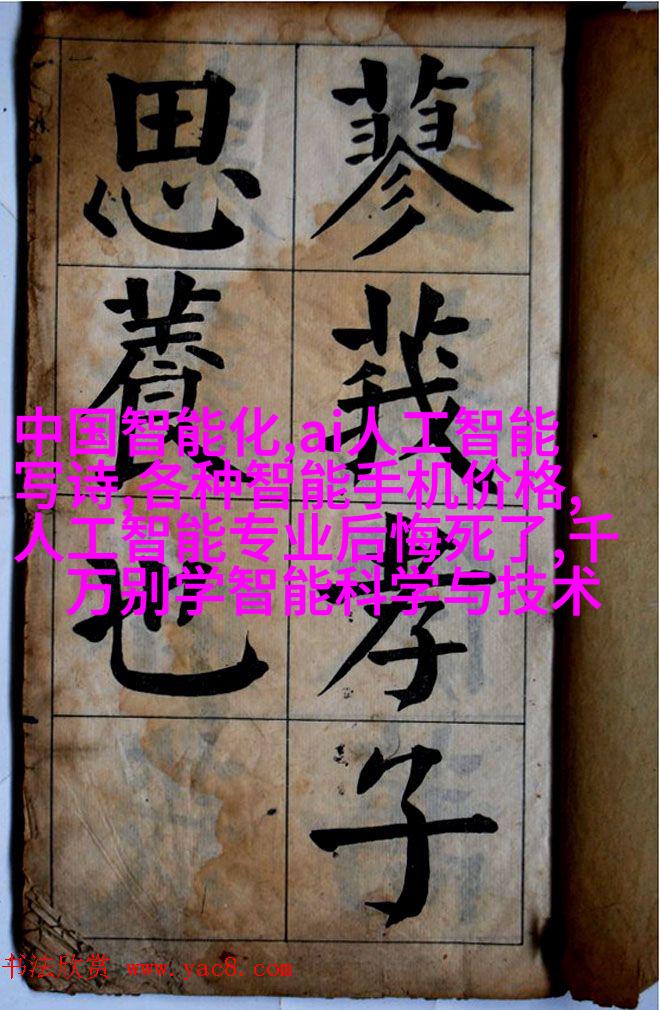 蓼莪孝子
思養也
中国智能化,ai人工智能
写诗,各种智能手机价格,
人工智能专业后悔死了,千
万别学智能科学与技术
书法欣赏 www.yac8.com